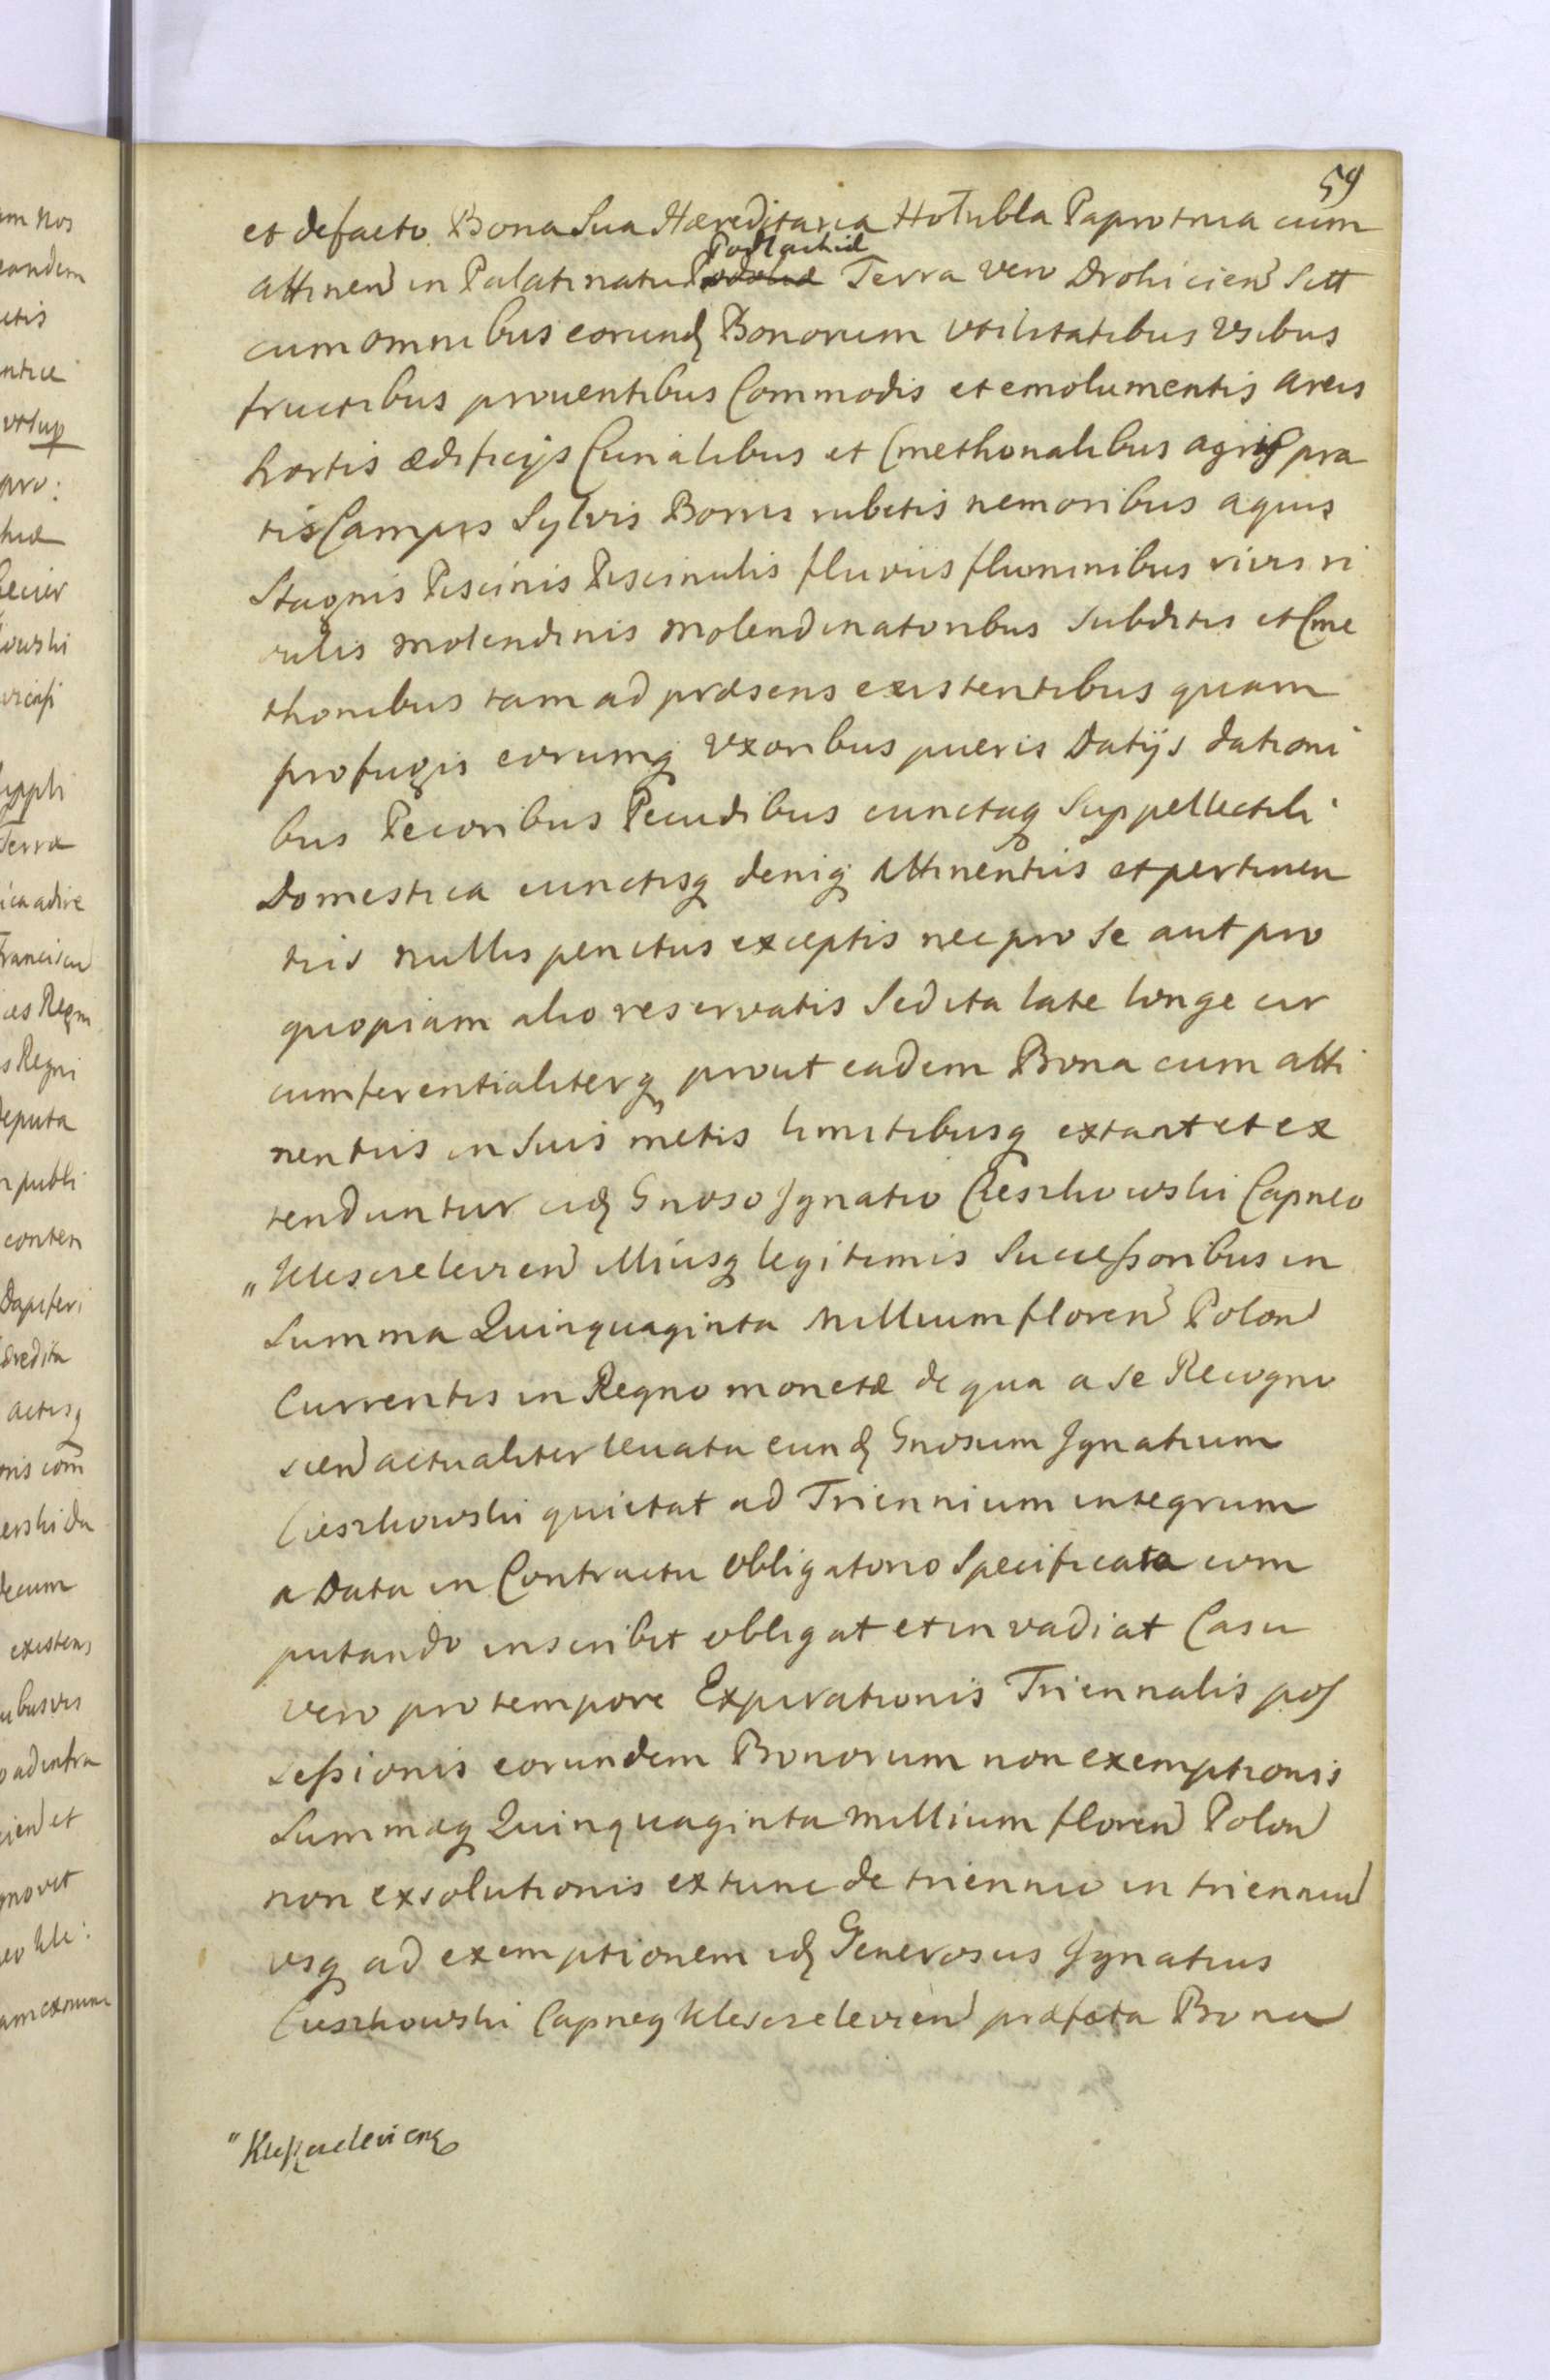 59
et defacto Bona Sua Hæreditaria Hołubla Paprotnia cum
Podlachiæ
attinen in Palatinatu Podoliæ Terra vero Drohicien Sitt
cum omnibus eorund Bonorum vtilitatibus vsibus
fructibus prouentibus Commodis et emolumentis areis
hortis ædificijs Curialibus et Cmethonalibus agris pra
tis Campis Sylvis Borris rubetis nemoribus aquis
Stagnis Piscinis Piscinulis fluviis fluminibus rivis ri
vulis molendinis Molendinatoribus Subditis et Cme
thonibus tam ad præsens existentibus quam
profugis eorumq vxoribus pueris Datijs dationi
bus Pecoribus Pecudibus cunctaq Suppellectili
Domestica cunctisq deniq Attinentiis et pertinen
tiis nullis penitus exceptis nec pro se aut pro
quopiam alio reservatis Sed ita late longe cir
cumferentialiterq prout eadem Bona cum atti
nentiis in Suis metis limitibusq extant et ex
tenduntur eid Gnoso Jgnatio Cieszkowski Capneo
" Klesczelevien illiusq legitimis Successoribus in
Summa Quinquaginta Millium floren Polon
Currentis in Regno monetæ de qua a se Recogno
scen actualiter levata eund Gnosum Jgnatium
Cieszkowski quietat ad Triennium integrum
a Data in Contractu Obligatorio Specificata com
putando inscribit obligat et invadiat Casu
vero pro tempore Expirationis Triennalis pos
sessionis eorundem Bonorum non exemptionis
Summæq Quinquaginta Millium floren Polon
non exsolutionis ex tunc de triennio in trienniu
vsq ad exemptionem id Generosus Jgnatius
Cieszkowski Capneq Klesczelevien præfata Bona
" Kleszczelevien